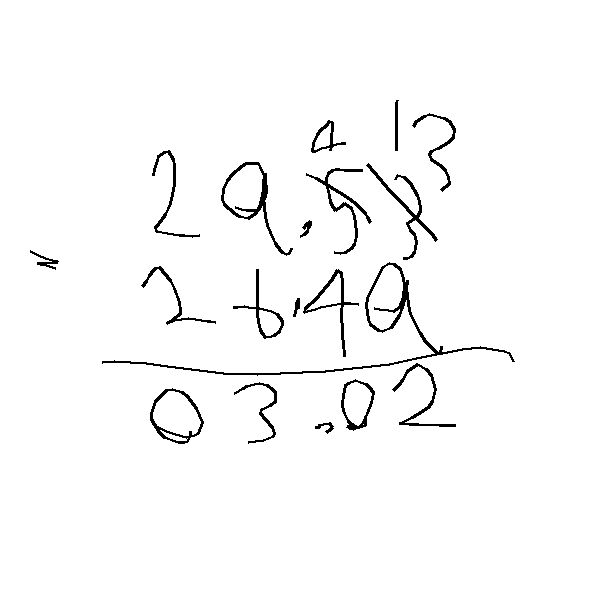 4 13
29.53
= 26.49
03.02